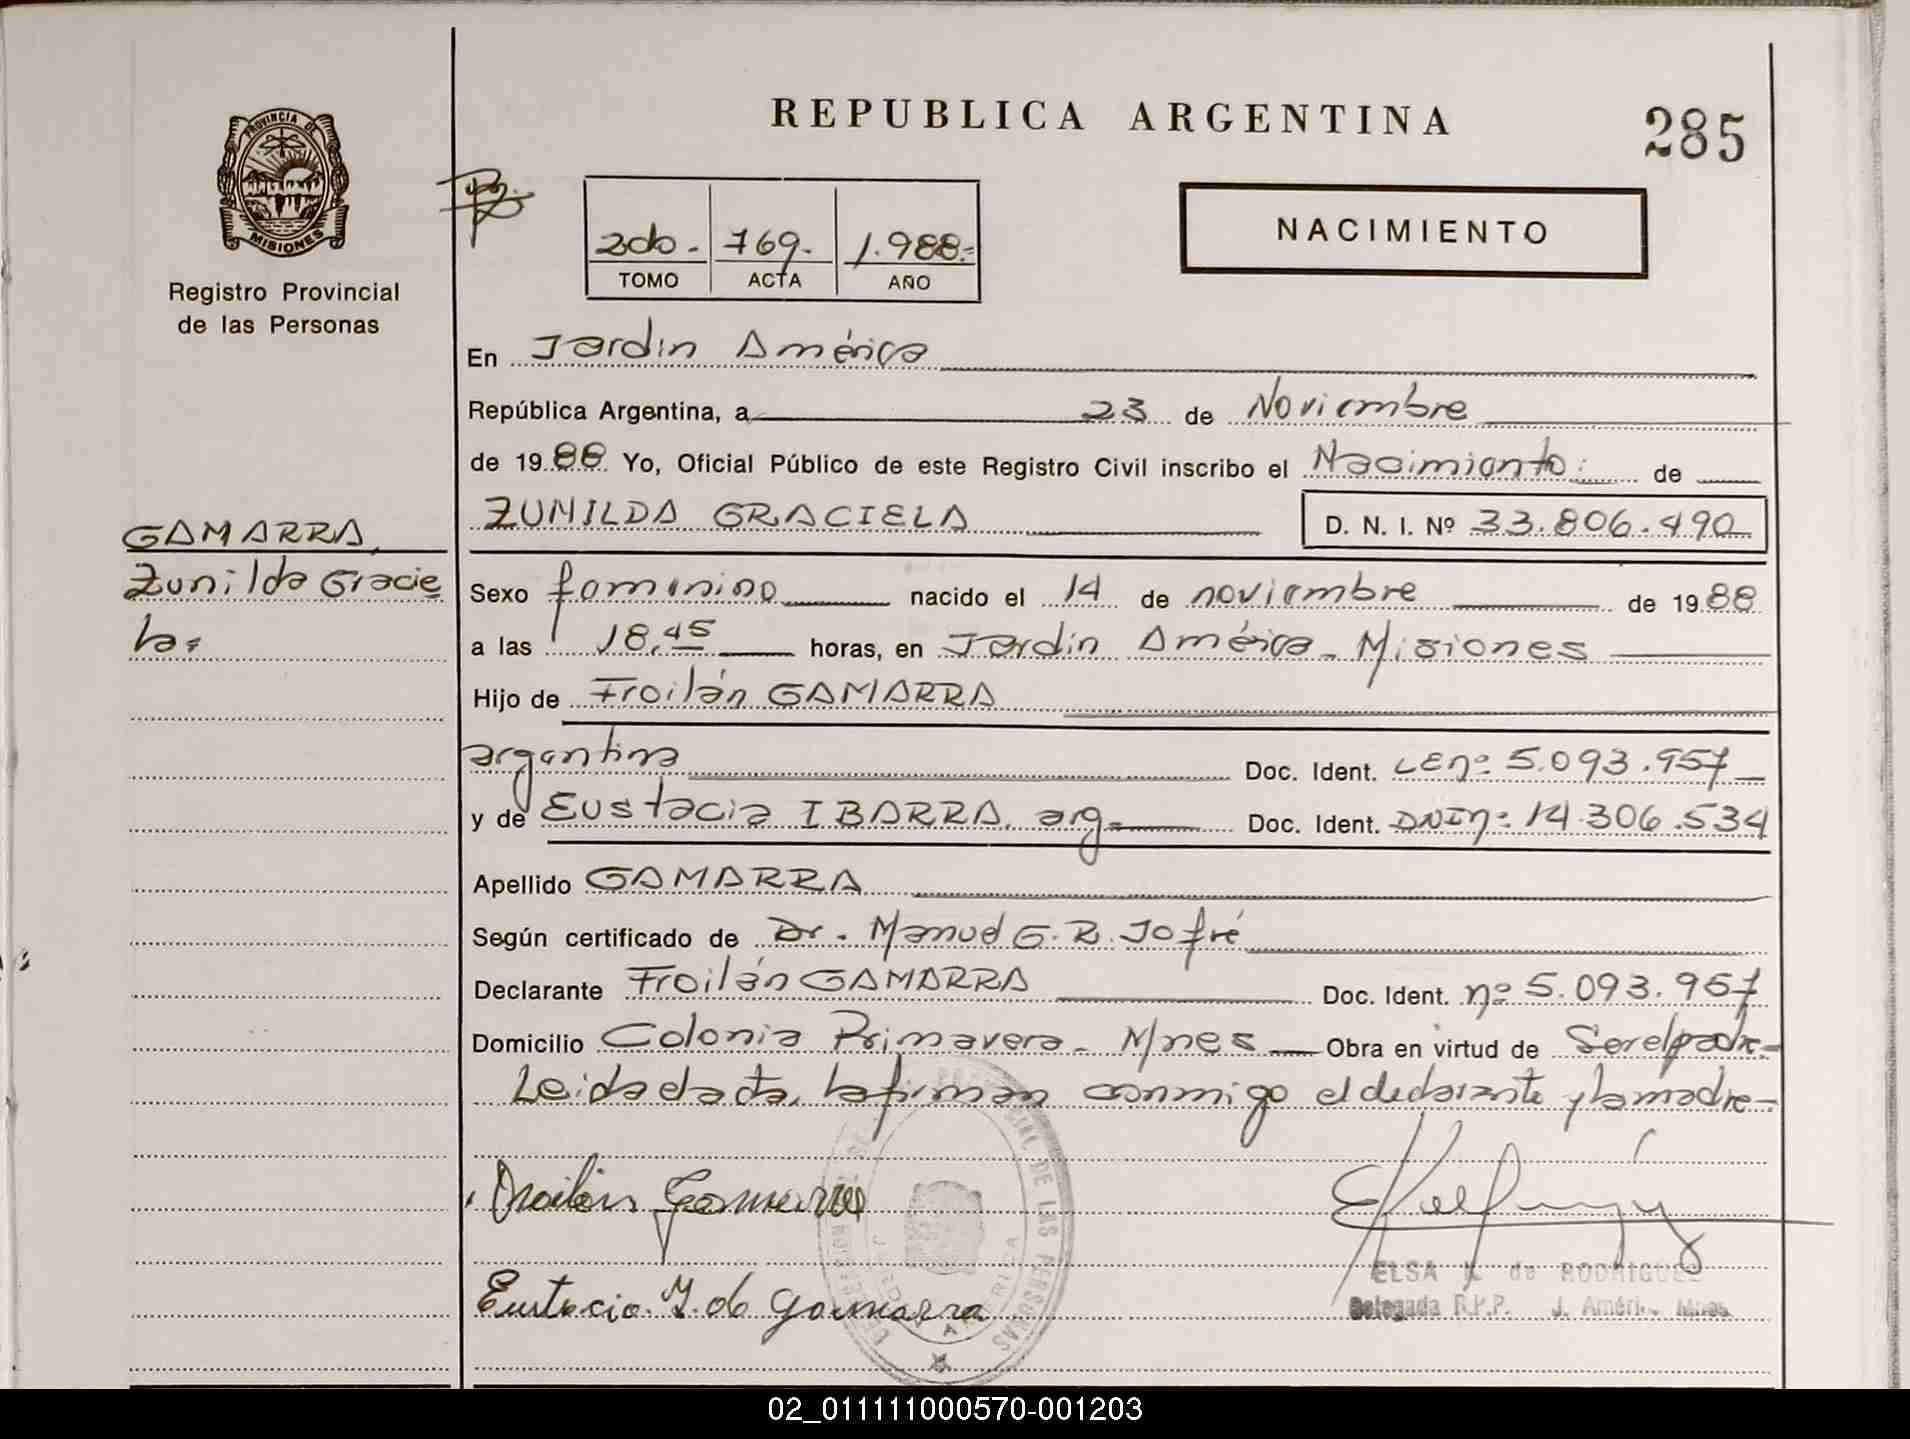 REPUBLICA ARGENTINA
285
PROVINCIA DE
MISIONES
Registro Provincial
de las Personas
2do.- 769.- 1.988.-
TOMO ACTA AÑO
NACIMIENTO
En Jardín América
República Argentina, a 23 de Noviembre
de 1988 Yo, Oficial Público de este Registro Civil inscribo el Nacimiento: de
ZUNILDA GRACIELA D. N. I. Nº 33.806.490
GAMARRA,
Zunilda Gracie
la.
Sexo femenino nacido el 14 de noviembre de 1988
a las 18,45 horas, en Jardín América - Misiones
Hijo de Froilán GAMARRA
argentina Doc. Ident. LEnº 5.093.957
y de Eustacia IBARRA, arg. Doc. Ident. DNInº 14.306.534
Apellido GAMARRA
Según certificado de Dr. Manuel G. R. Jofré
Declarante Froilán GAMARRA Doc. Ident. nº 5.093.957
Domicilio Colonia Primavera - Mnes Obra en virtud de Ser el padre-
Leida el acta, la firman conmigo el declarante y la madre-
Froilán Gamarra
Eustacia I. de Gamarra
DE LAS PERSONAS
ELSA de RODRIGUEZ
Delegada R.P.P. J. Améri. Mnes.
02_011111000570-001203